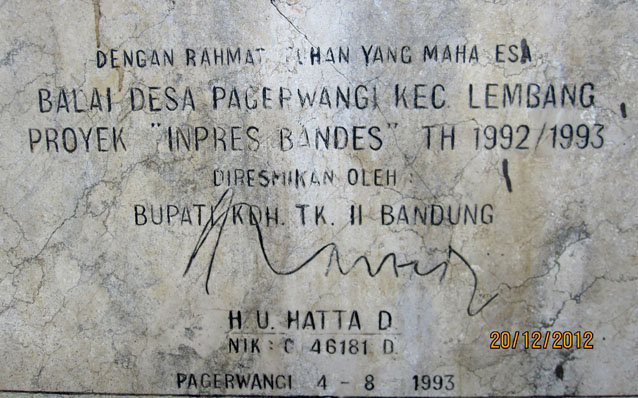 DENGAN RAHMAT TUHAN YANG MAHA ESA
BALAI DESA PAGERWANGI KEC. LEMBANG
PROYEK "INPRES BANDES" TH 1992/1993
DIRESMIKAN OLEH :
BUPATI KDH. TK. II BANDUNG
H. U. HATTA D
NIK : C 46181 D.
PAGERWANGI 4 - 8 1993
20/12/2012